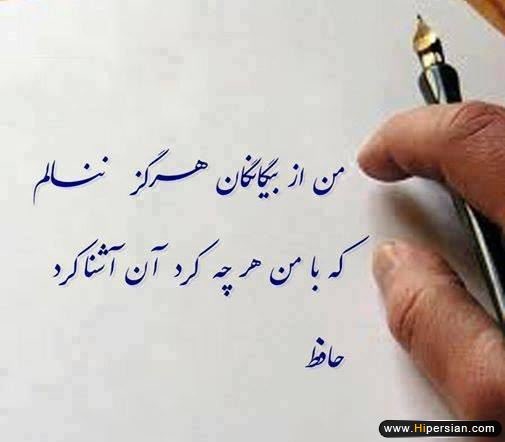 من از بیگانگان هرگز ننالم
که با من هر چه کرد آن آشنا کرد
حافظ
www.Hipersian.com